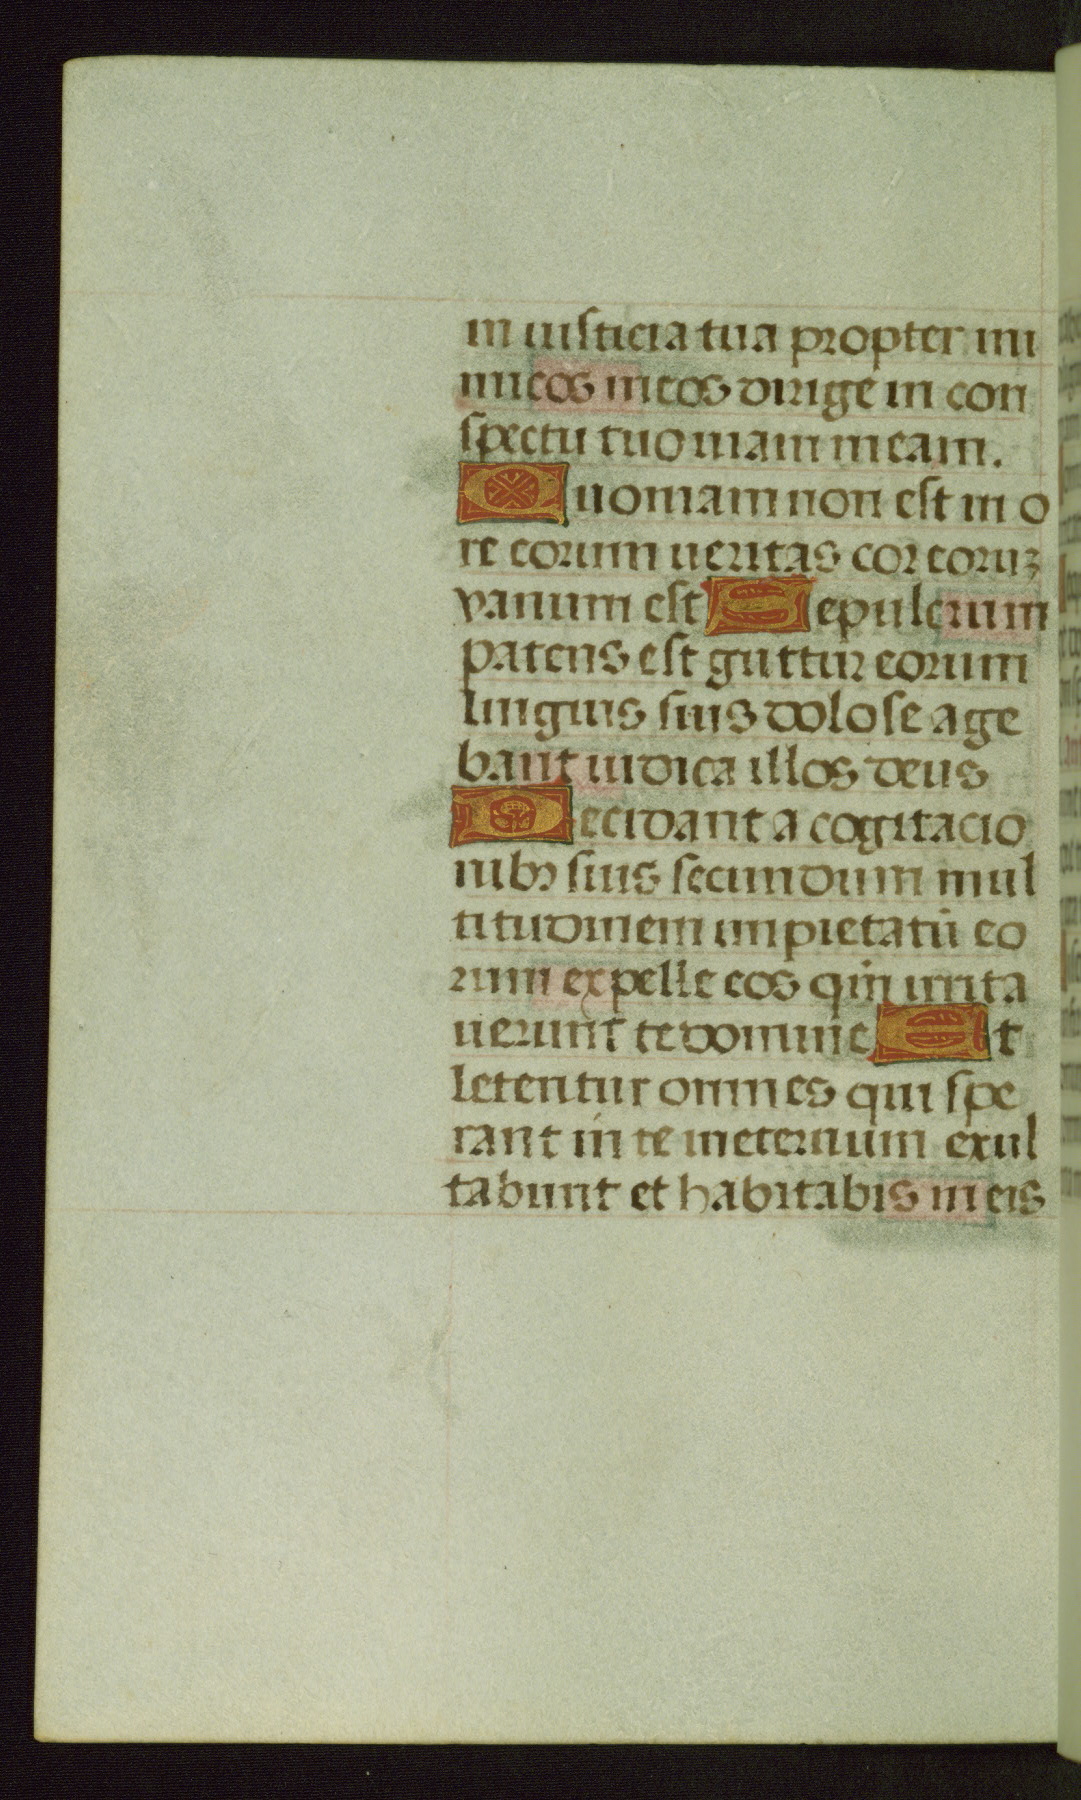 in iusticia tua propter ini
micos meos dirige in con
spectu tuo uiam meam.
Quoniam non est in o
re eorum ueritas cor eoruꝫ
vanum est Sepulcrum
patens est guttur eorum
linguis suis dolose age
bant iudica illos deus
Decidant a cogitacio
nibꝫ suis secundum mul
titudinem impietatū eo
rum expelle eos qm̄ irrita
uerunt te domine Et
letentur omnes qui spe
rant in te in eternum exul
tabunt et habitabis in eis